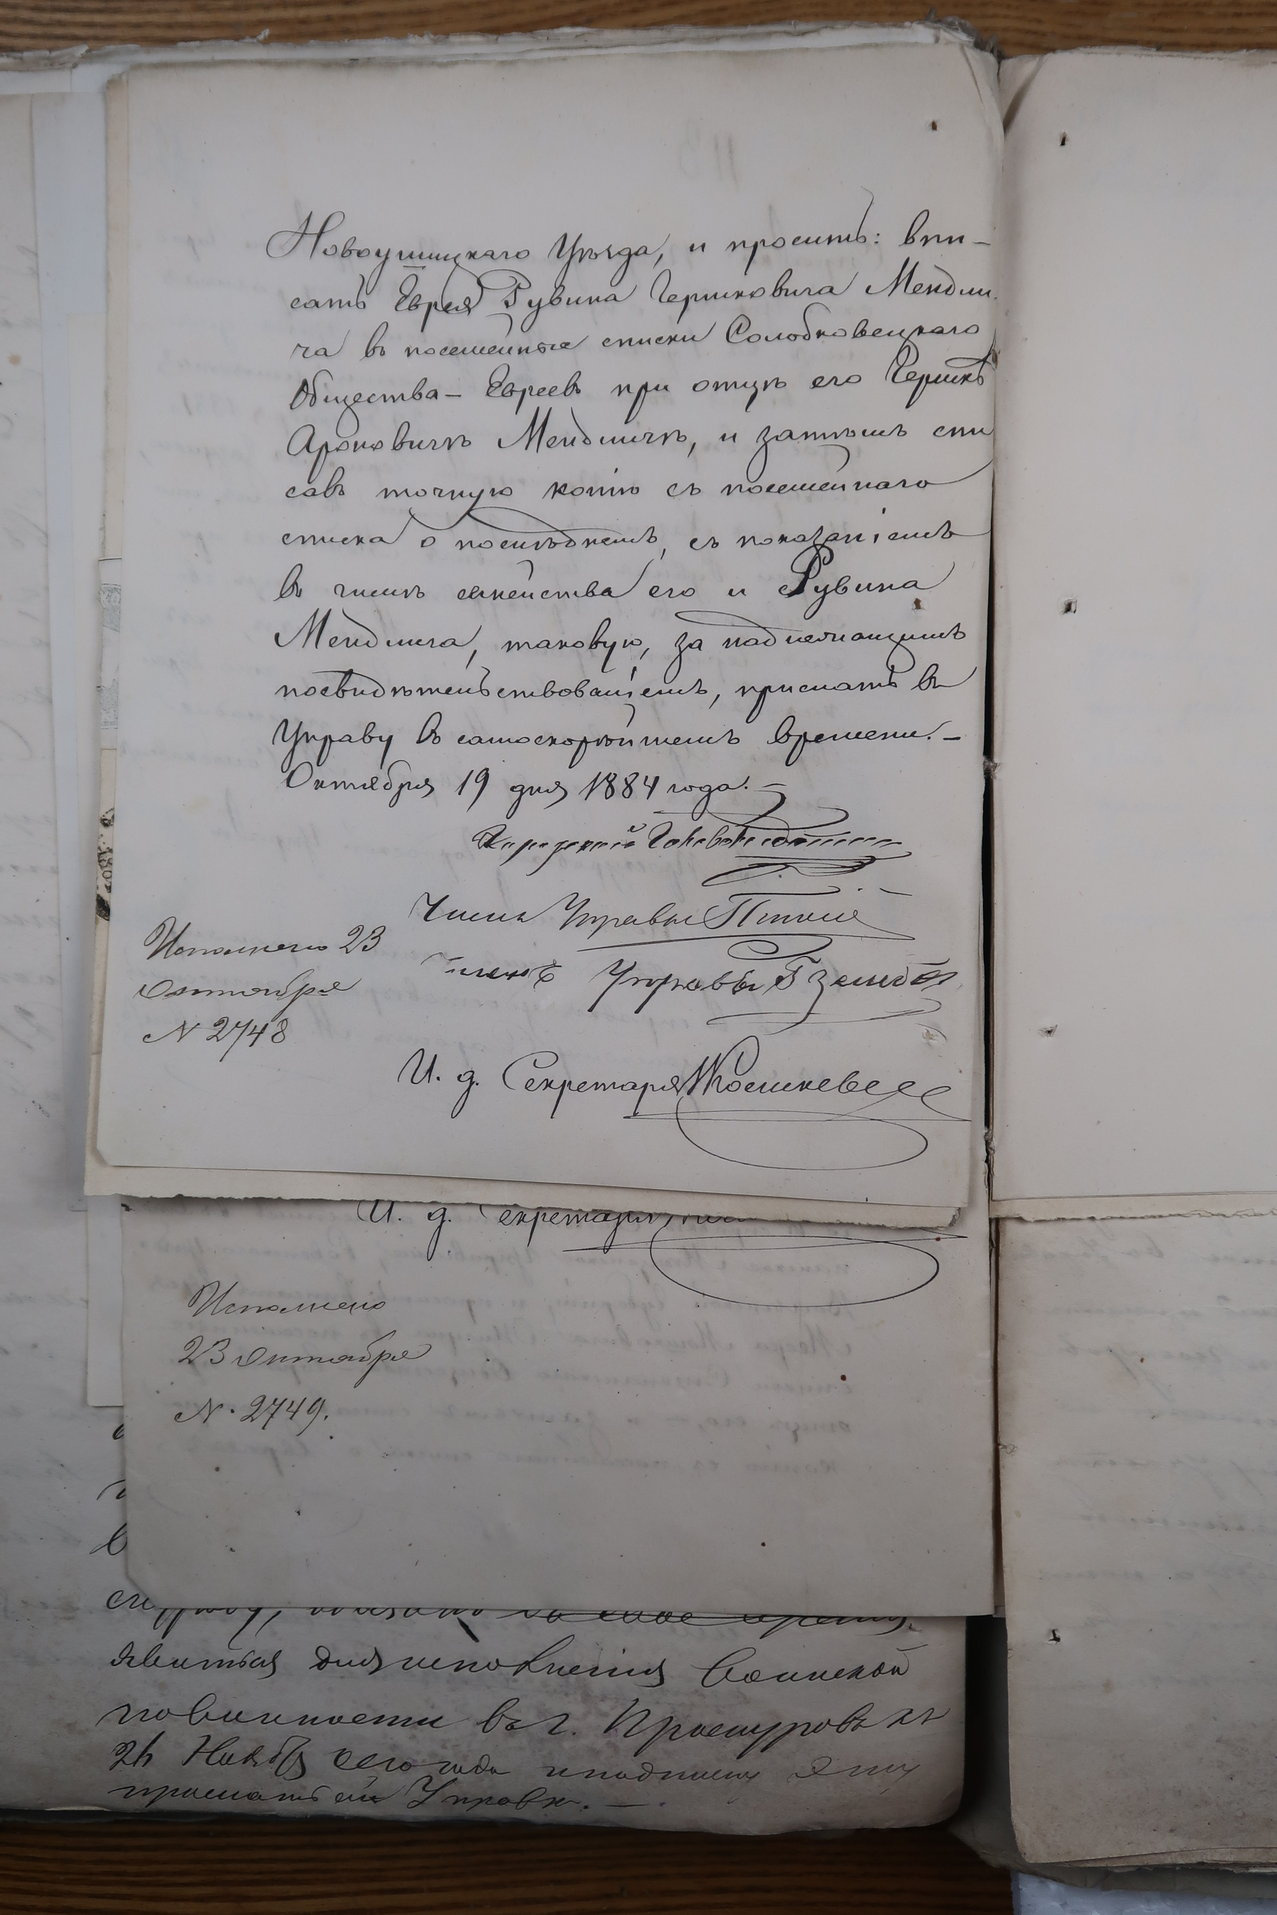 Новоушицкаго Уѣзда, и проситъ: впи-
сать Еврея Рувина Гершковича Мендли-
ча въ посемейные списки Солобковецкаго
Общества - Евреевъ при отцѣ его Гершкѣ
Ароновичѣ Мендличѣ, и затѣмъ спи
савъ точную копію съ посемейнаго
списка о послѣднемъ, съ показаніемъ
въ числѣ семейства его и Рувина
Мендлича, таковую, за надлежащимъ
посвидѣтельствованіемъ, прислать въ
Управу въ самоскорѣйшемъ времени. -
Октября 19 дня 1884 года. -
Городской Голова
Членъ Управы
Членъ Управы
Исполнено 23
Октября
N 2748
И. д. Секретаря
И. д. Секретаря
Исполнено
23 Октября
N. 2749.
явиться для исполненія воинской
повинности въ г. Проскуровъ къ
Ноября сего года и подписку эту
прислать Управѣ. -